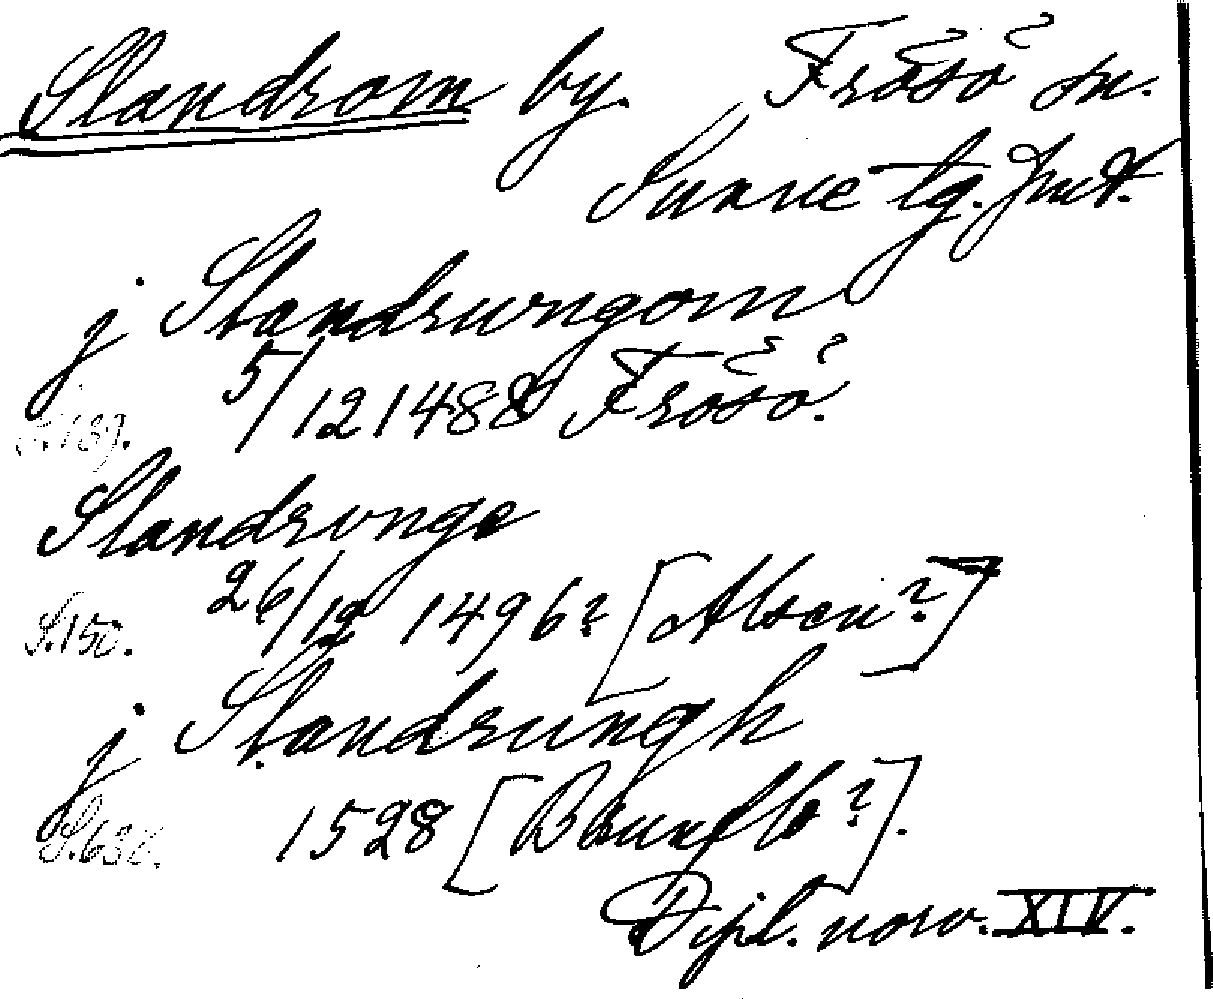 Slandrom by. Frösö sn.
Sunne tg. Jmt.
j Slandrungom
5/12 1488 Frösö.
S. 139.
Slandronge
26/12 1496? [Alsen?]
S. 150.
j Slandrungh
1528 [Brunflo?].
Dipl. norv. XIV.